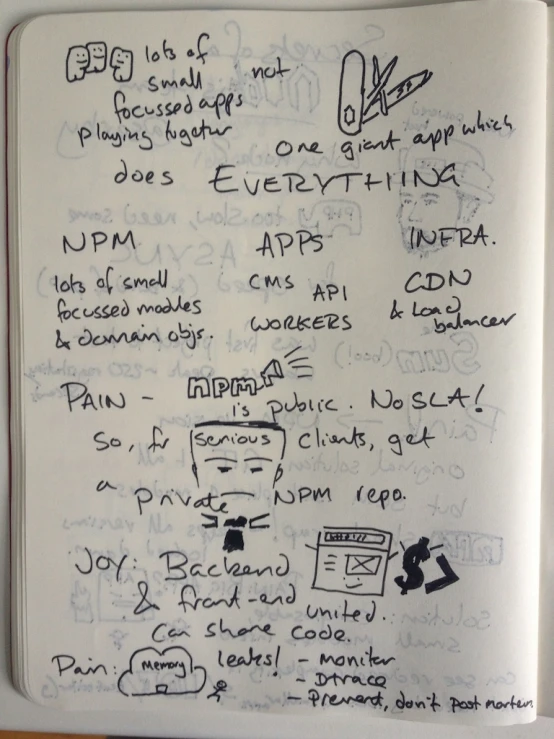 lots of
small not
focussed apps
playing together
one giant app which
does EVERYTHING
NPM APPS INFRA.
lots of small CMS API CDN
focussed modles & Load
& domain objs. WORKERS balancer
PAIN - npm
is public. No SLA!
So, for serious clients, get
a private NPM repo.
JOY: Backend
& front-end united.
Can share code.
Pain: Memory leaks! - monitor
- Dtrace
- Prevent, don't post mortem